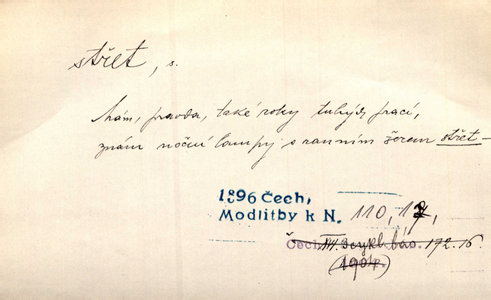 střet, s.
Mám, pravda, také roky tuhých prací,
znám noční lampy s ranním šerem střet –
1896 Čech,
Modlitby k N. 110, 17,
Čech 172.16.
(1904)